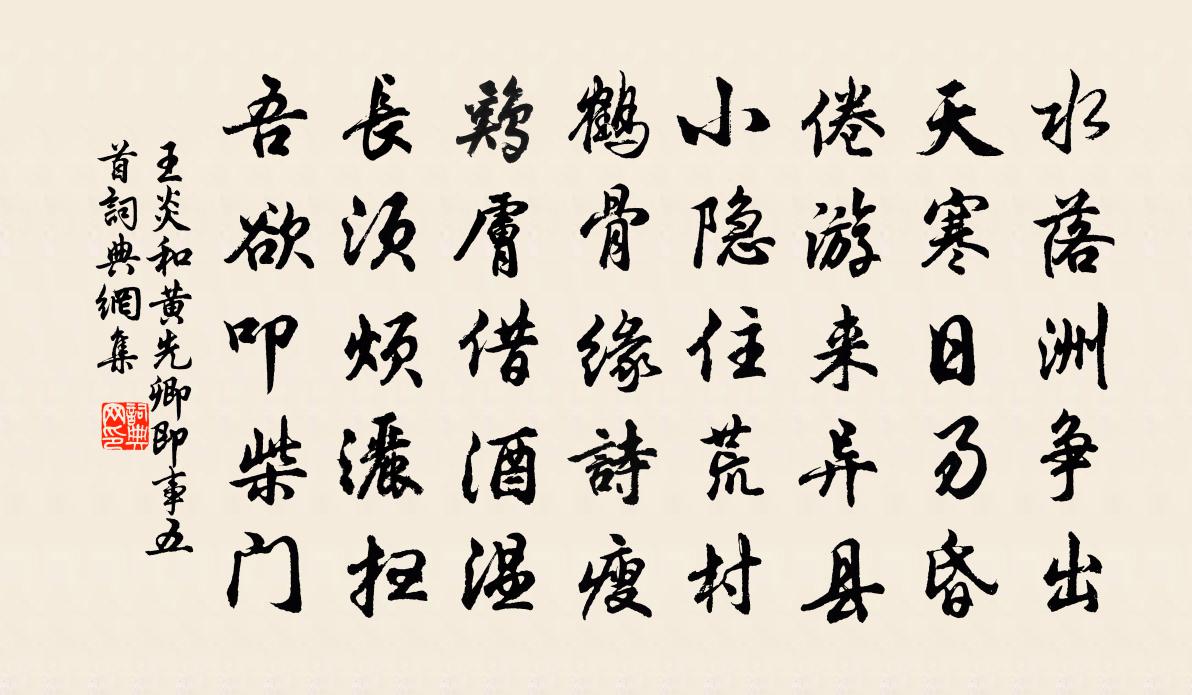 水落洲争出
天寒日易昏
倦游来异县
小隐住荒村
鹤骨缘詩瘦
鶏膚借酒温
長须煩灑扫
吾欲叩柴门
王炎和黄先卿即事五
首詞典網集
詞典网印